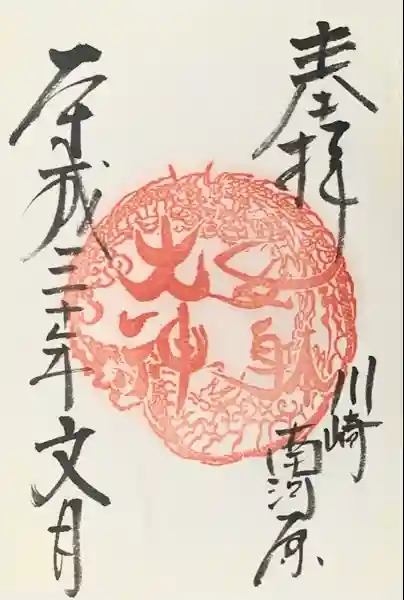 奉拝
川崎
南河原
女躰
大神
平成三十年文月